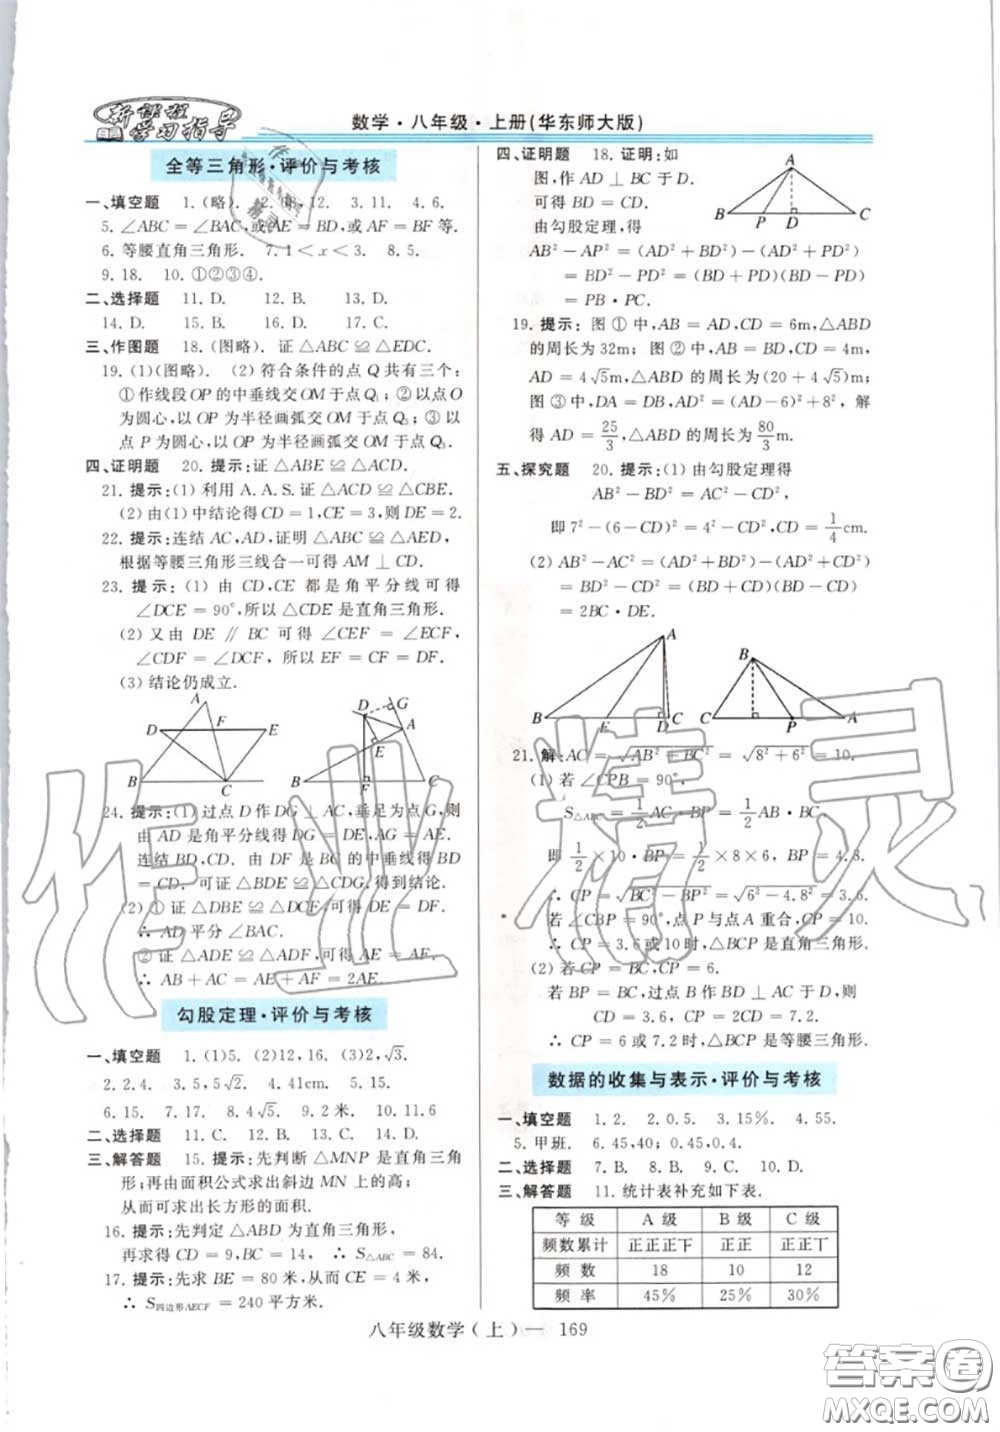 新课程
学习指导
数学·八年级·上册(华东师大版)
全等三角形·评价与考核
一、填空题 1.(略). 2. 12. 3.11. 4.6.
5.∠ABC=∠BAC,或AE=BD,或AF=BF等.
6.等腰直角三角形. 7.1<x<3. 8.5.
9.18. 10.①②③④.
二、选择题 11.D. 12.B. 13.D.
14.D. 15.B. 16.D. 17.C.
三、作图题 18.(图略).证△ABC≌△EDC.
19.(1)(图略). (2)符合条件的点Q共有三个:
①作线段OP的中垂线交OM于点Q₁;②以点O
为圆心,以OP为半径画弧交OM于点Q₂;③以
点P为圆心,以OP为半径画弧交OM于点Q₃.
四、证明题 20.提示:证△ABE≌△ACD.
21.提示:(1)利用A.A.S.证△ACD≌△CBE.
(2)由(1)中结论得CD=1,CE=3,则DE=2.
22.提示:连结AC,AD,证明△ABC≌△AED,
根据等腰三角形三线合一可得AM⊥CD.
23.提示:(1)由CD,CE都是角平分线可得
∠DCE=90°,所以△CDE是直角三角形.
(2)又由DE∥BC可得∠CEF=∠ECF,
∠CDF=∠DCF,所以EF=CF=DF.
(3)结论仍成立.
A
D F E
B C
D G
A
E
B F C
24.提示:(1)过点D作DG⊥AC,垂足为点G,则
由AD是角平分线得DG=DE,AG=AE.
连结BD,CD.由DF是BC的中垂线得BD
=CD.可证△BDE≌△CDG,得到结论.
(2)①证△DBE≌△DCG,可得DE=DG.
∴AD平分∠BAC.
②证△ADE≌△ADG,可得AE=AG.
∴AB+AC=AE+AF=2AE.
勾股定理·评价与考核
一、填空题 1.(1)5. (2)12,16. (3)2,√3.
2.2,4. 3.5,5√2. 4.41cm. 5.15.
6.15. 7.17. 8.4√5. 9.2米. 10.11.6
二、选择题 11.C. 12.B. 13.D. 14.D.
三、解答题 15.提示:先判断△MNP是直角三角
形;再由面积公式求出斜边MN上的高;
从而可求出长方形的面积.
16.提示:先判定△ABD为直角三角形,
再求得CD=9,BC=14, ∴S△ABC=84.
17.提示:先求BE=80米,从而CE=4米,
∴S四边形AECF=240平方米.
四、证明题 18.证明:如
图,作AD⊥BC于D.
可得BD=CD.
由勾股定理,得
A
B P D C
AB²-AP²=(AD²+BD²)-(AD²+PD²)
=BD²-PD²=(BD+PD)(BD-PD)
=PB·PC.
19.提示:图①中,AB=AD,CD=6m,△ABD
的周长为32m;图②中,AB=BD,CD=4m,
AD=4√5m,△ABD的周长为(20+4√5)m;
图③中,DA=DB,AD²=(AD-6)²+8²,解
得AD=25/3,△ABD的周长为80/3m.
五、探究题 20.提示:(1)由勾股定理得
AB²-BD²=AC²-CD²,
即7²-(6-CD)²=4²-CD²,CD=1/4cm.
(2)AB²-AC²=(AD²+BD²)-(AD²+CD²)
=BD²-CD²=(BD+CD)(BD-CD)
=2BC·DE.
A
B E D C
B
C P A
21.解:AC=√AB²+BC²=√8²+6²=10.
(1)若∠CPB=90°,
S△ABC=1/2AC·BP=1/2AB·BC.
即1/2×10·BP=1/2×8×6,BP=4.8.
∴CP=√BC²-BP²=√6²-4.8²=3.6.
若∠CBP=90°,点P与点A重合,CP=10.
∴CP=3.6或10时,△BCP是直角三角形.
(2)若CP=CB,CP=6.
若BC=BP,过点B作BD⊥AC于D,则
CD=3.6,CP=2CD=7.2.
∴CP=6或7.2时,△BCP是等腰三角形.
数据的收集与表示·评价与考核
一、填空题 1.2. 2.0.5. 3.15%. 4.55.
5.甲班. 6.45,40;0.45,0.4.
二、选择题 7.B. 8.B. 9.C. 10.D.
三、解答题 11.统计表补充如下表.
等级 A级 B级 C级
频数累计 正正正下 正正 正正丅
频数 18 10 12
频率 45% 25% 30%
八年级数学(上)— 169
作业精灵
答案卷
MXQE.COM